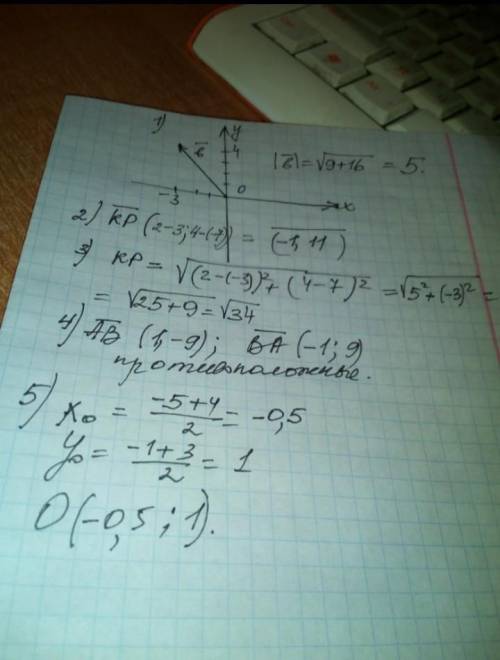 1) y
4
b̅
|b̅| = √9+16 = 5.
-3
0
x
2) K̅P̅ (2-3; 4-(-7)) = (-1, 11)
3) KP = √(2-(-3))² + (4-7)² = √5²+(-3)² =
= √25+9 = √34
4) A̅B̅ (1,-9); B̅A̅ (-1; 9)
противоположные.
5) x₀ = -5+4/2 = -0,5
y₀ = -1+3/2 = 1
O(-0,5; 1).